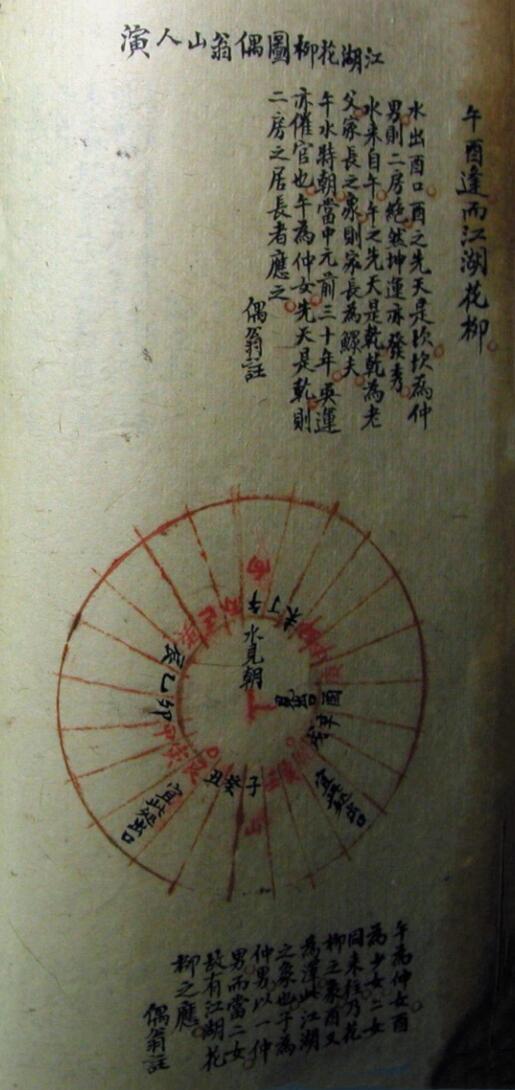 午酉逢而江湖花柳
水出酉口酉之先天是坎坎為仲
男則二房絕然坤運亦發秀
水来自午午之先天是乾乾為老
父家長之象則家長為鰥夫
午水特朝當中元前三十年巽運
亦催官也午為仲女先天是乾則
二房之居長者應之
偶翁註
江湖花柳圖偶翁山人演
向
午丁未
水見朝
酉辛
子癸丑
山
卯乙辰
宜此處出口
午為仲女酉
為少女二女
同来往乃花
柳之象酉又
為澤此江湖
之象也子為
仲男以一仲
男而當二女
故有江湖花
柳之應
偶翁註